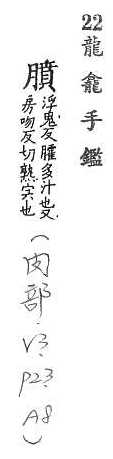 22龍龕手鑑
膹
浮鬼反臛多汁也又
房吻反切熟宍也
(肉部.V3.P23.A8)